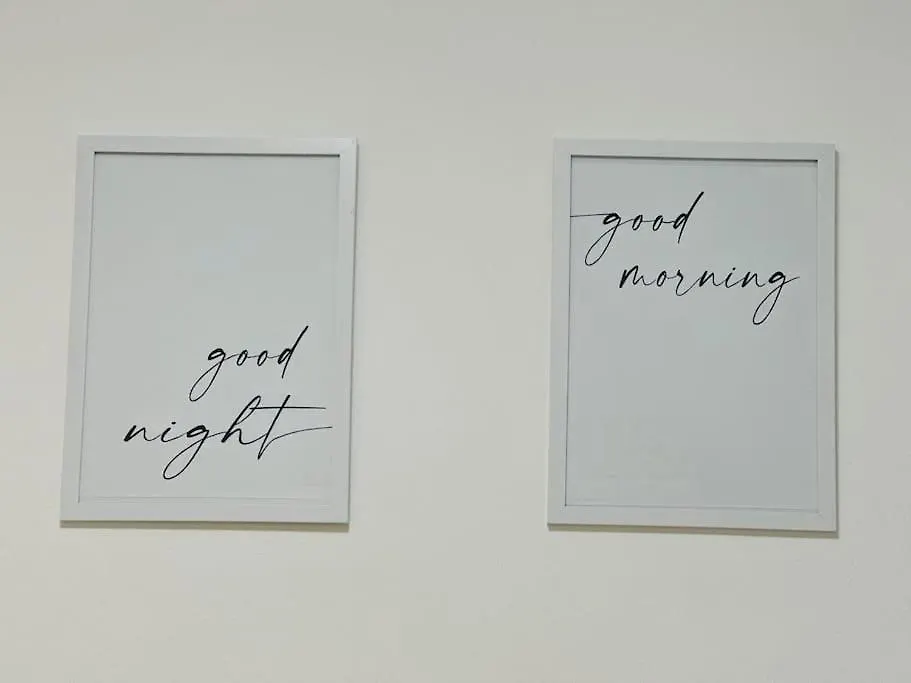 good
night
good
morning